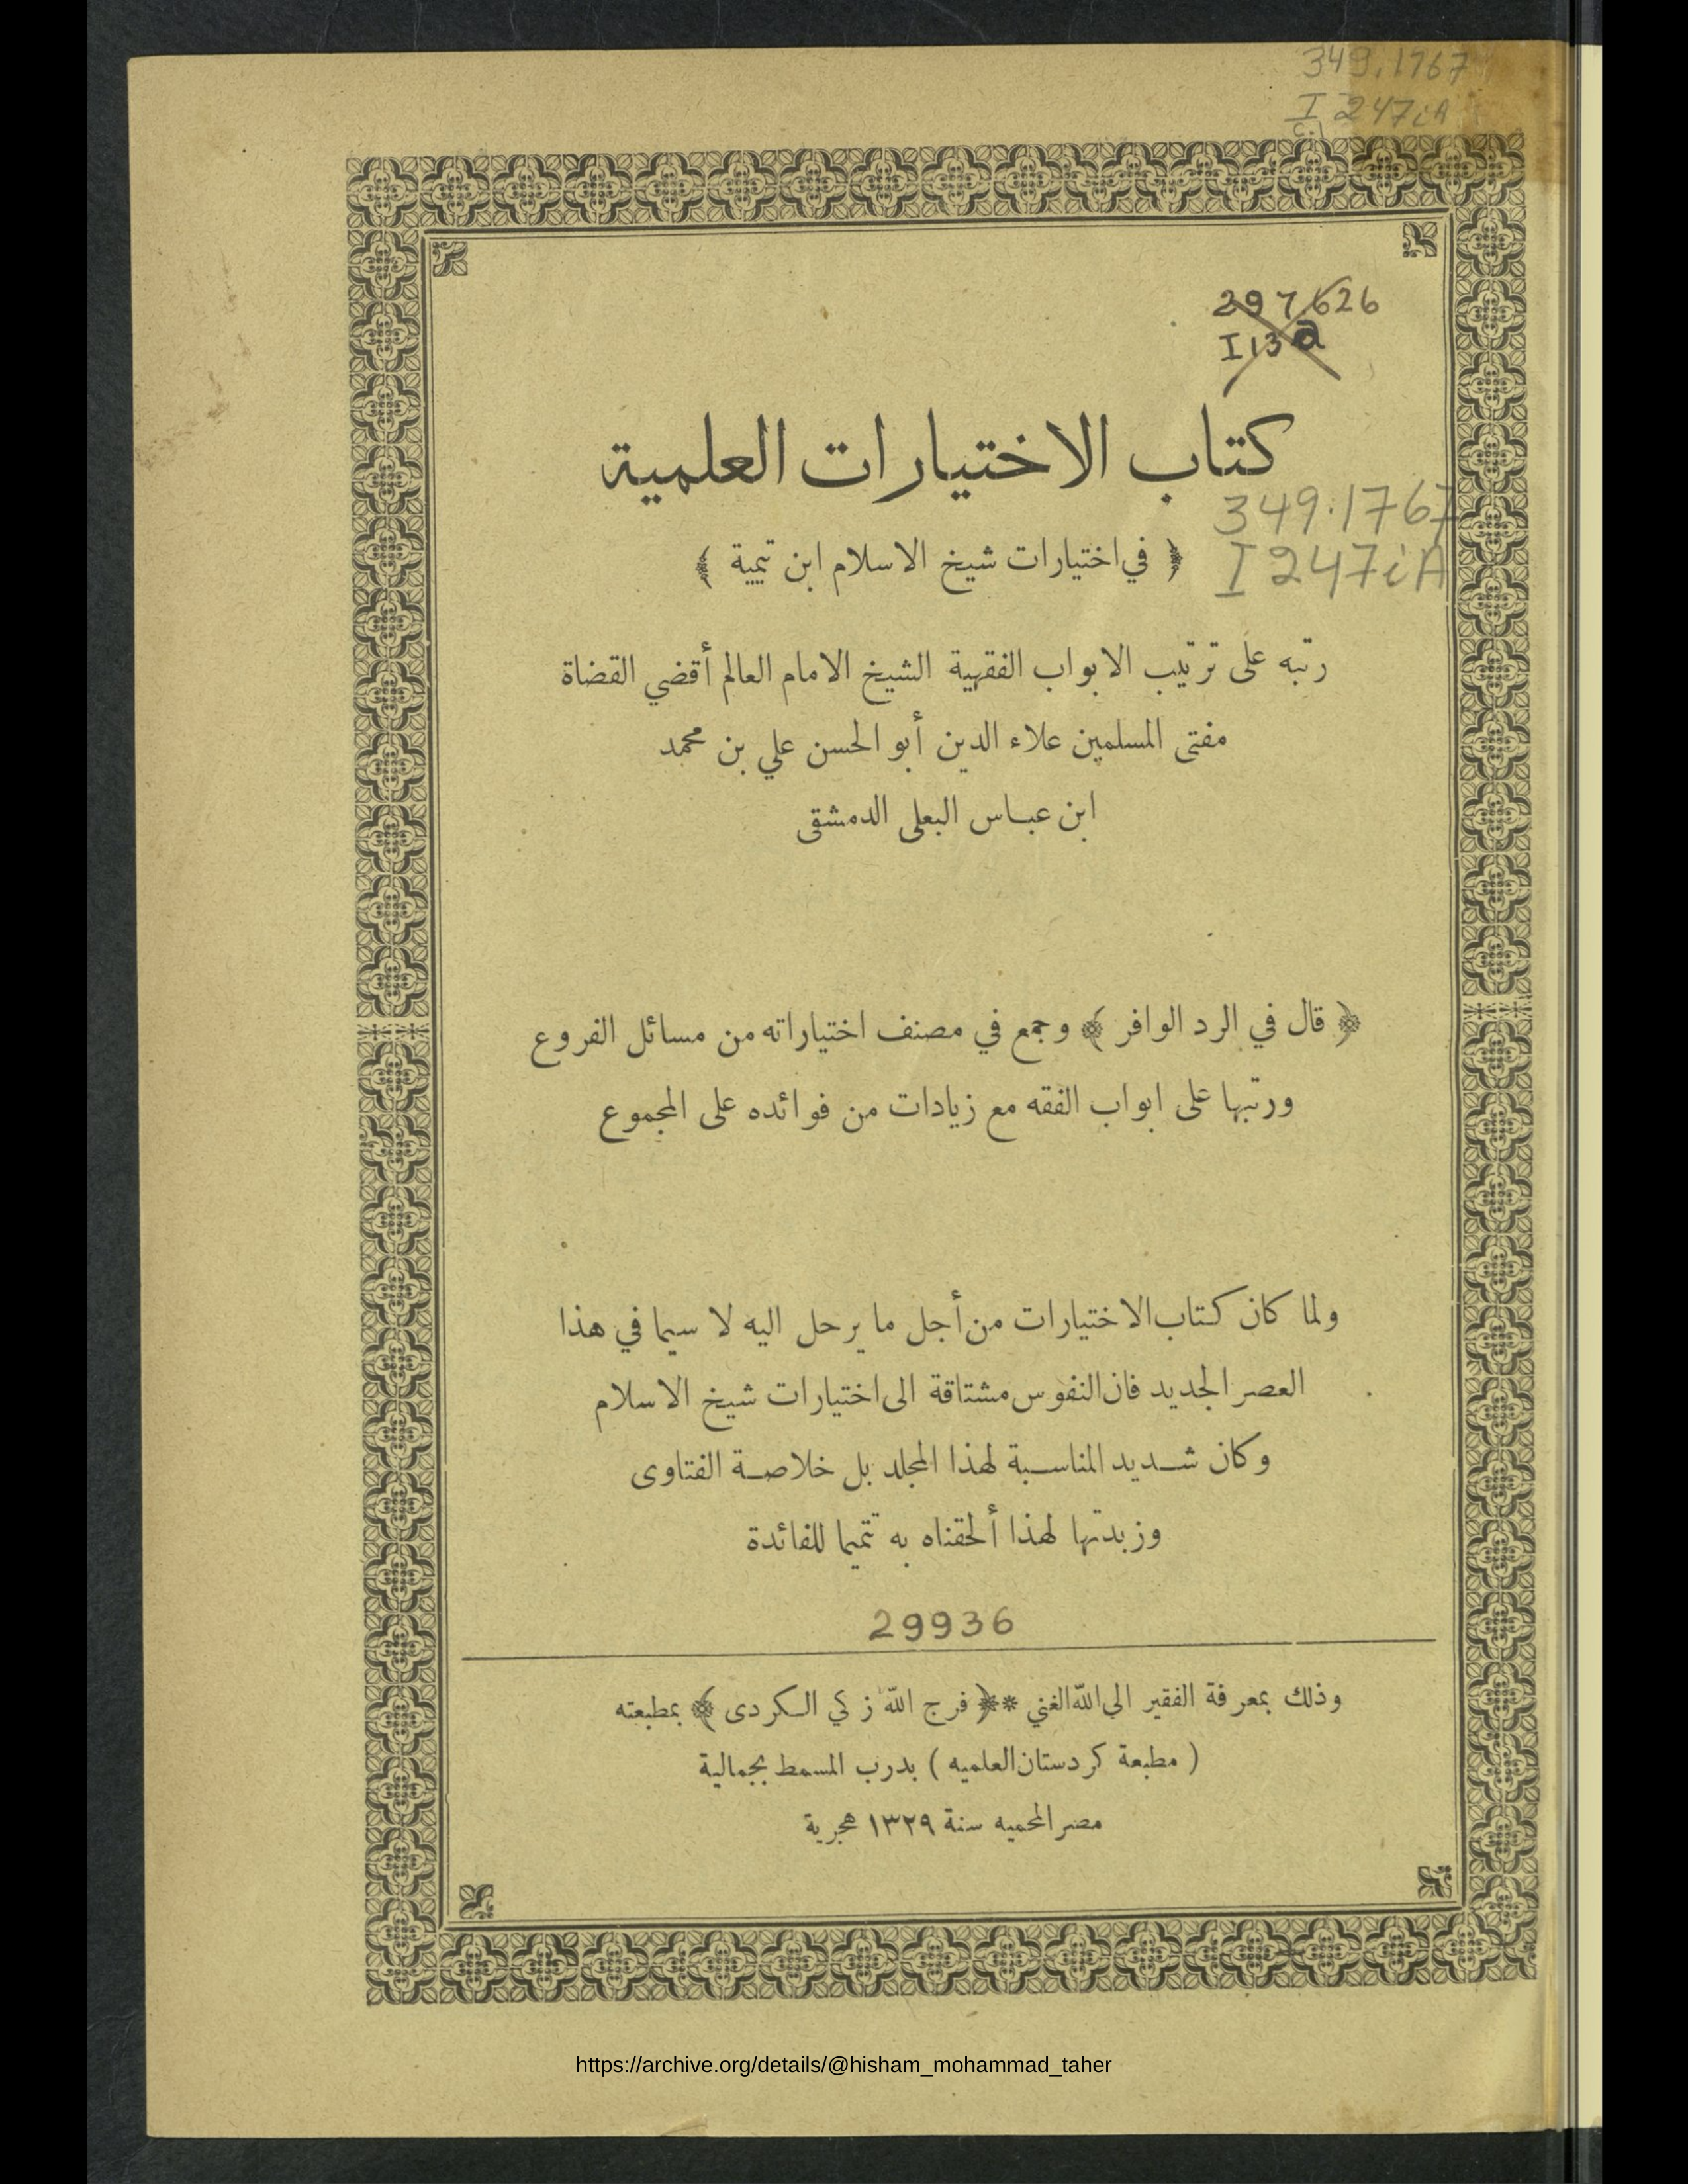 349.1767
I 247iA
c.1
297.626
I13a
كتاب الاختيارات العلمية
﴿ في اختيارات شيخ الاسلام ابن تيمية ﴾
349.1767
I 247iA
رتبه على ترتيب الابواب الفقهية الشيخ الامام العالم أقضي القضاة
مفتى المسلمين علاء الدين أبو الحسن علي بن محمد
ابن عباس البعلى الدمشقى
﴿ قال في الرد الوافر ﴾ وجمع في مصنف اختياراته من مسائل الفروع
ورتبها على ابواب الفقه مع زيادات من فوائده على المجموع
ولما كان كتاب الاختيارات من أجل ما يرحل اليه لا سيما في هذا
العصر الجديد فان النفوس مشتاقة الى اختيارات شيخ الاسلام
وكان شديد المناسبة لهذا المجلد بل خلاصة الفتاوى
وزبدتها لهذا ألحقناه به تتميما للفائدة
29936
وذلك بمعرفة الفقير الى الله الغني ** ﴿ فرج الله زكي الكردى ﴾ بمطبعته
( مطبعة كردستان العلميه ) بدرب المسمط بجمالية
مصر المحميه سنة ١٣٢٩ هجرية
https://archive.org/details/@hisham_mohammad_taher